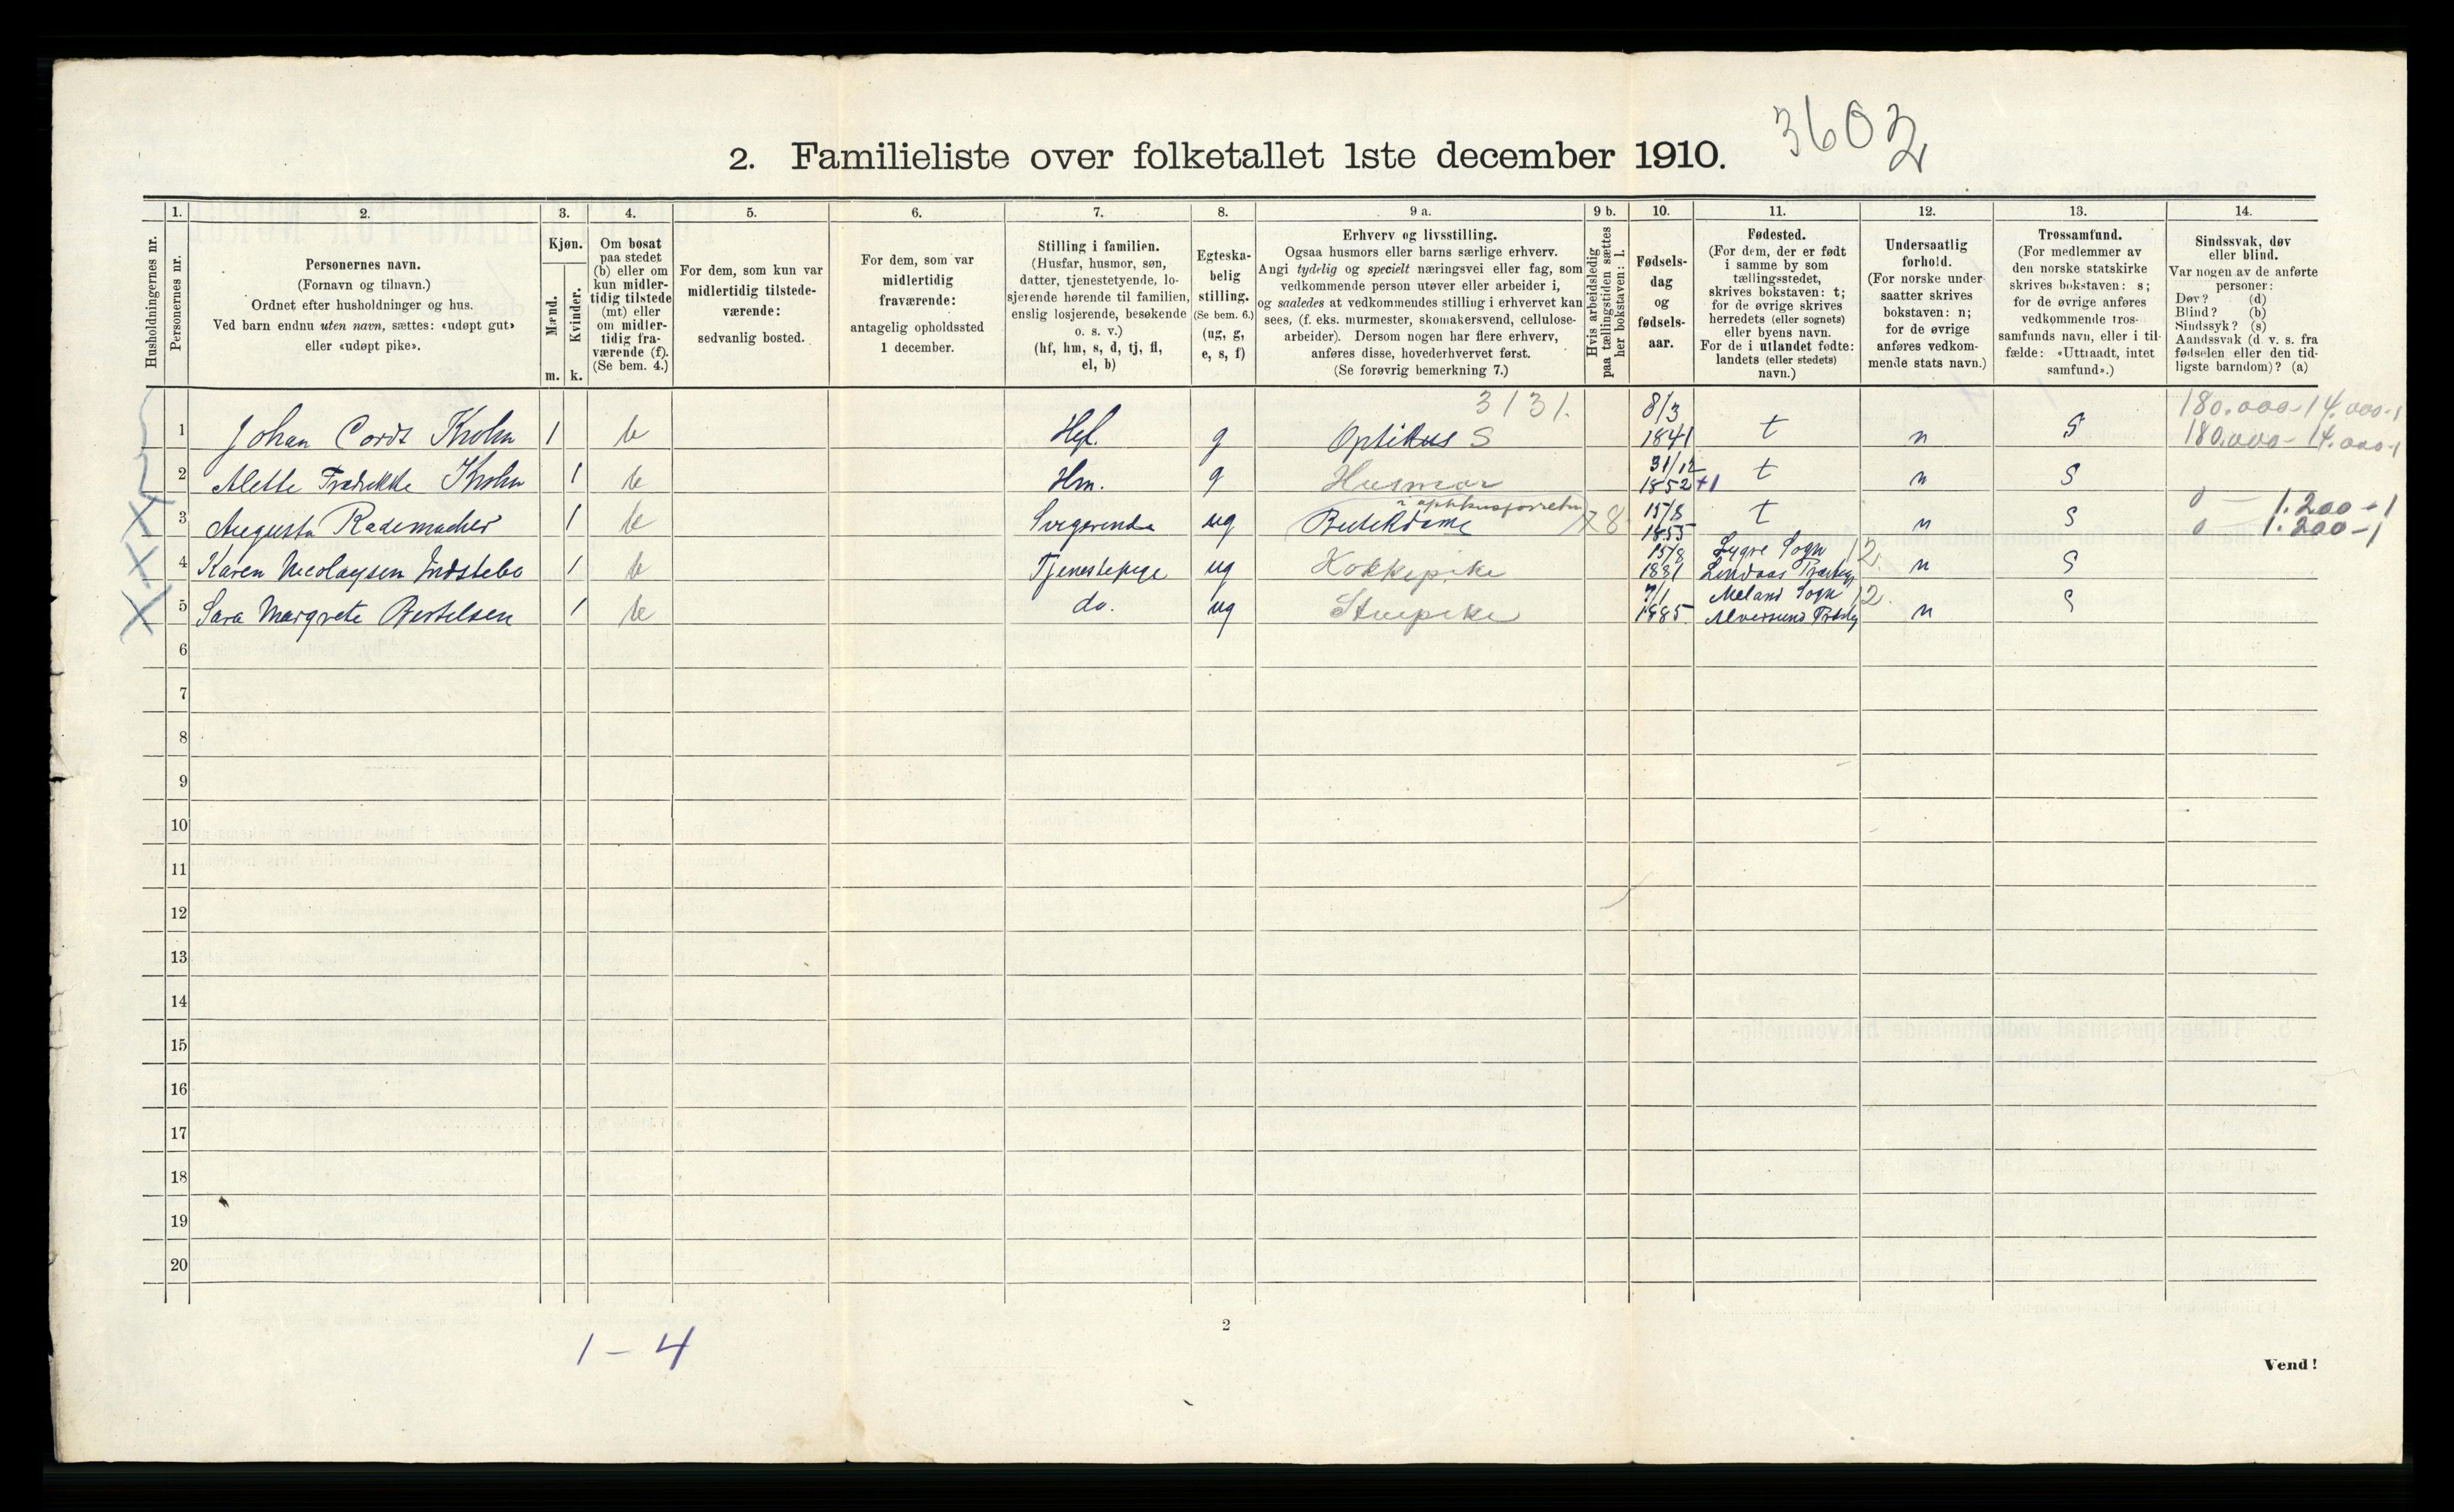 3603
2. Familieliste over folketallet 1ste december 1910.
1. 2. 3. 4. 5. 6. 7. 8. 9 a. 9 b. 10. 11. 12. 13. 14.
Husholdningernes nr.
Personernes nr.
Personernes navn.
(Fornavn og tilnavn.)
Ordnet efter husholdninger og hus.
Ved barn endnu uten navn, sættes: «udøpt gut»
eller «udøpt pike».
Kjøn.
Mænd.
Kvinder.
m. k.
Om bosat
paa stedet
(b) eller om
kun midler-
tidig tilstede
(mt) eller
om midler-
tidig fra-
værende (f).
(Se bem. 4.)
For dem, som kun var
midlertidig tilstede-
værende:
sedvanlig bosted.
For dem, som var
midlertidig
fraværende:
antagelig opholdssted
1 december.
Stilling i familien.
(Husfar, husmor, søn,
datter, tjenestetyende, lo-
sjerende hørende til familien,
enslig losjerende, besøkende
o. s. v.)
(hf, hm, s, d, tj, fl,
el, b)
Egteska-
belig
stilling.
(Se bem. 6.)
(ug, g,
e, s, f)
Erhverv og livsstilling.
Ogsaa husmors eller barns særlige erhverv.
Angi tydelig og specielt næringsvei eller fag, som
vedkommende person utøver eller arbeider i,
og saaledes at vedkommendes stilling i erhvervet kan
sees, (f. eks. murmester, skomakersvend, cellulose-
arbeider). Dersom nogen har flere erhverv,
anføres disse, hovederhvervet først.
(Se forøvrig bemerkning 7.)
Hvis arbeidsledig
paa tællingstiden sættes
her bokstaven: l.
Fødsels-
dag
og
fødsels-
aar.
Fødested.
(For dem, der er født
i samme by som
tællingsstedet,
skrives bokstaven: t;
for de øvrige skrives
herredets (eller sognets)
eller byens navn.
For de i utlandet fødte:
landets (eller stedets)
navn.)
Undersaatlig
forhold.
(For norske under-
saatter skrives
bokstaven: n;
for de øvrige
anføres vedkom-
mende stats navn.)
Trossamfund.
(For medlemmer av
den norske statskirke
skrives bokstaven: s;
for de øvrige anføres
vedkommende tros-
samfunds navn, eller i til-
fælde: «Uttraadt, intet
samfund».)
Sindssvak, døv
eller blind.
Var nogen av de anførte
personer:
Døv? (d)
Blind? (b)
Sindssyk? (s)
Aandssvak (d. v. s. fra
fødselen eller den tid-
ligste barndom)? (a)
3131. 8/3 180.000-14.000-1
1 Johan Cords Krohn 1 b Hf. g Optikus S 1841 t n S 180.000-14.000-1
31/12
2 Alette Fredrikke Krohn 1 b Hm. g Husmor 1852 +1 t n S
15/8 0 — 1.200-1
3 Augusta Rademacher 1 b Svigerinde ug Butikdame X 8 1855 t n S 0 — 1.200-1
15/8 Lygre Sogn 12.
4 Karen Nicolaysen Indstebø 1 b Tjenestepige ug Kokkepike 1881 Lindaas Præstegj n S
7/1 Meland Sogn 12.
5 Sara Margrete Bertelsen 1 b do. ug Stuepike 1885 Alversund Præstegj n S
6
7
8
9
10
11
12
13
14
15
16
17
18
19
20
2
1 - 4
Vend!